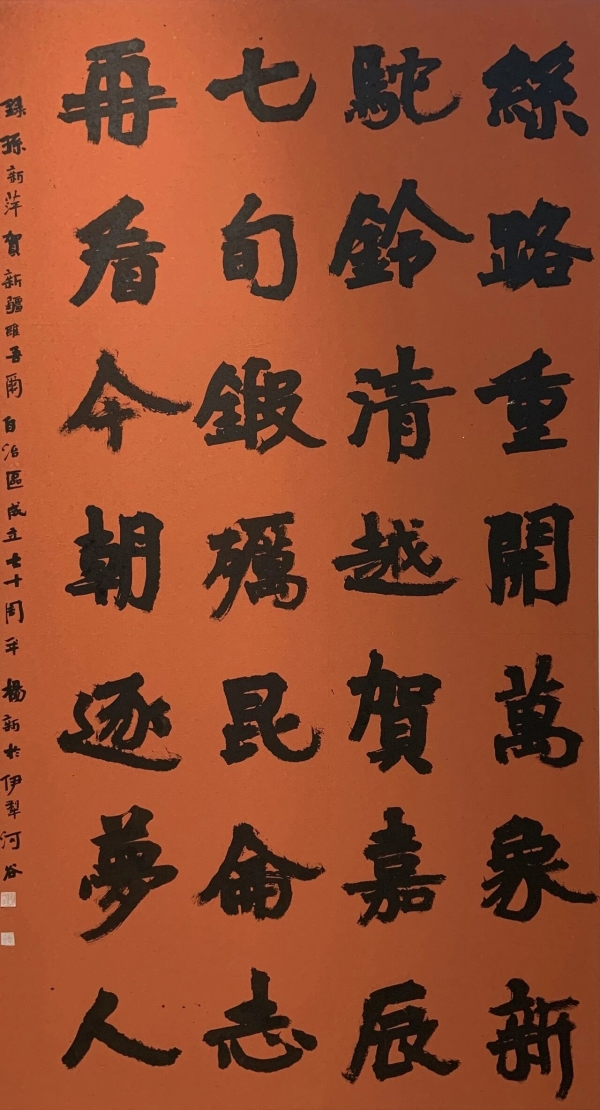 絲路重開萬象新
駝鈴清越賀嘉辰
七旬鍛礪昆侖志
再看今朝逐夢人
錄孫新萍賀新疆維吾爾自治區成立七十周年 楊新於伊犁河谷